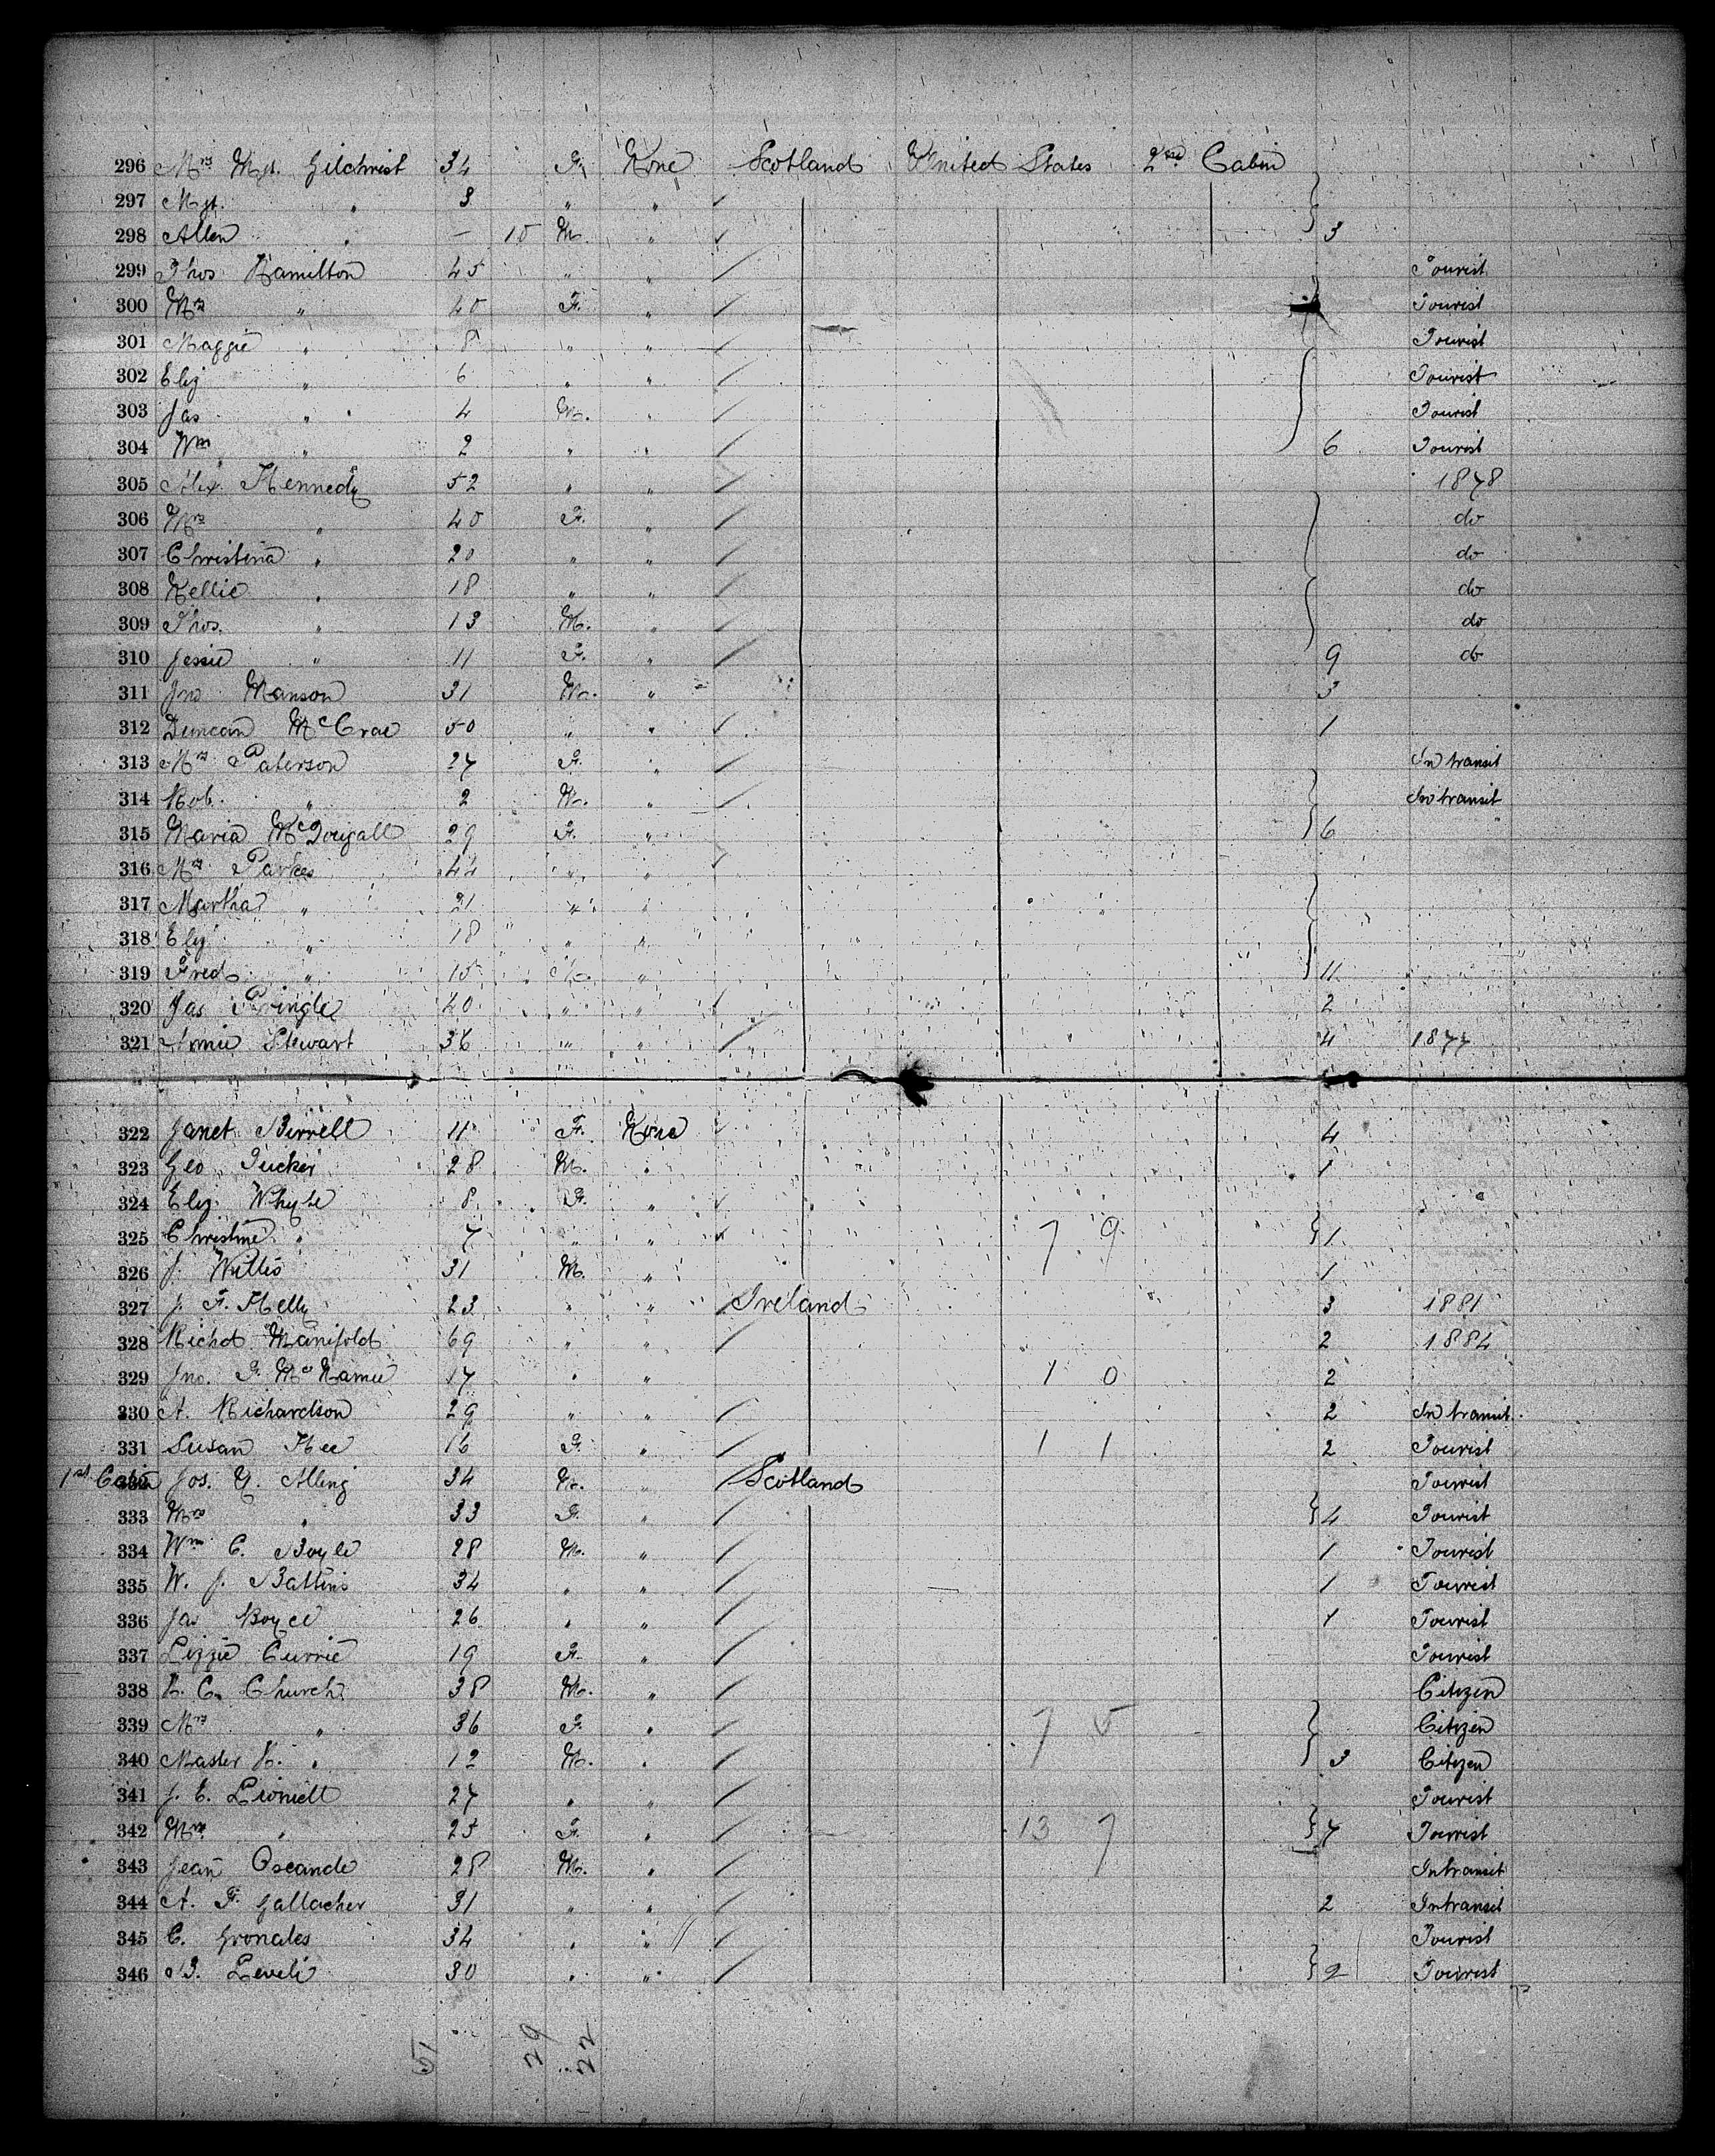 296 Mrs Mgt. Gilchrist 34 F. None Scotland United States 2nd Cabin
297 Mgt. " 3 " "
298 Allen " — 10 M. " 3
299 Thos Hamilton 45 " " Tourist
300 Mrs " 40 F. " Tourist
301 Maggie " 8 " " Tourist
302 Eliz " 6 " " Tourist
303 Jas " 4 M. " Tourist
304 Wm " 2 " " 6 Tourist
305 Alex. Kennedy 52 " " 1878
306 Mrs " 40 F. " do
307 Christina " 20 " " do
308 Nellie " 18 " " do
309 Thos. " 13 M. " do
310 Jessie " 11 F. " 9 do
311 Jno Manson 31 M. " 3
312 Duncan McCrae 50 " " 1
313 Mrs Paterson 27 F. " In transit
314 Rob. " 2 M. " In transit
315 Maria McDougall 29 F. " 6
316 Mrs Parkes 44 " "
317 Martha " 21 " "
318 Eliz " 18 " "
319 Fred " 15 M. " 11
320 Jas Pringle 40 " " 2
321 Stewart 36 " " 4 1877
322 Janet Birrell 11 F. None 4
323 Geo Tucker 28 M. " 1
324 Eliz. Whyte 8 F. "
325 Christine " 7 " " 7 9 1
326 J. Willis 31 M. " 1
327 J. F. Kelly 23 " " Ireland 3 1881
328 Richd Manifold 69 " " 2 1884
329 Jno. F. McNamee 17 " " 1 0 2
330 A. Richardson 29 " " 2 In transit.
331 Susan Kee 16 F. " 1 1 2 Tourist
1st Cabin 332 Jos. Y. Alling 34 M. " Scotland Tourist
333 Mrs " 33 F. " 4 Tourist
334 Wm C. Boyle 28 M. " 1 Tourist
335 W. J. Battins 34 " " 1 Tourist
336 Jas Boyce 26 " " 1 Tourist
337 Lizzie Currie 19 F. " Tourist
338 C. Church 38 M. " Citizen
339 Mrs " 36 F. " 7 5 Citizen
340 Master H. " 12 M. " 3 Citizen
341 J. E. 27 " " Tourist
342 Mrs " 25 F. " 13 7 7 Tourist
343 Jean Oscande 28 M. " Intransit
344 A. F. Gallacher 31 " " 2 Intransit
345 C. Gronales 34 " " Tourist
346 B. Leveli 30 " " 2 Tourist
51 29 22